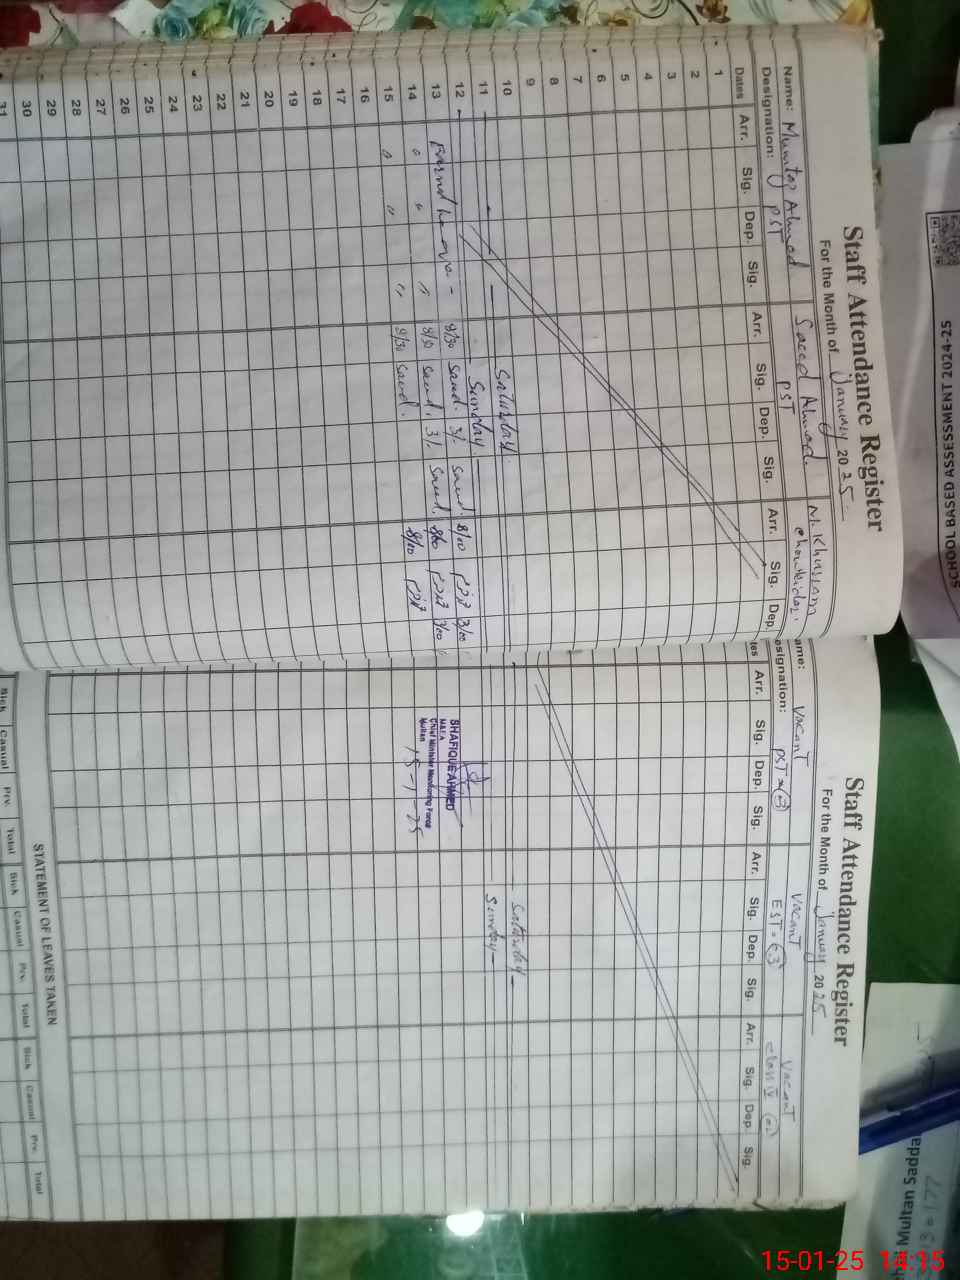 Staff Attendance Register
For the Month of January 2025
Name: Mumtaz Ahmad Saeed Ahmad. M. Khurram
Designation: PST PST chowkidar.
Dates Arr. Sig. Dep. Sig. Arr. Sig. Dep. Sig. Arr. Sig. Dep.
1
2
3
4
5
6
7
8
9
10 Saturday.
11 Sunday.
12
13 8/30 Saeed. 3/. Saeed. 8/00 3/00
14 " " " 8/30 Saeed. 3/. Saeed. 8/00 3/00
15 " " " 8/30 Saeed. 8/00
16
17
18
19
20
21
22
23
24
25
26
27
28
29
30
31
Staff Attendance Register
For the Month of January 2025
ame: Vacant Vacant Vacant
esignation: PST = (3) EST = (3) class IV (2)
tes Arr. Sig. Dep. Sig. Arr. Sig. Dep. Sig. Arr. Sig. Dep. Sig.
Saturday
Sunday
SHAFIQUE AHMED
M&EA
Chief Minister Monitoring Force
Multan
15-1-25
STATEMENT OF LEAVES TAKEN
Sick Casual Prv. Total Sick Casual Prv. Total Sick Casual Prv. Total
SCHOOL BASED ASSESSMENT 2024-25
Multan Sadda
= 177
15-01-25 14:15